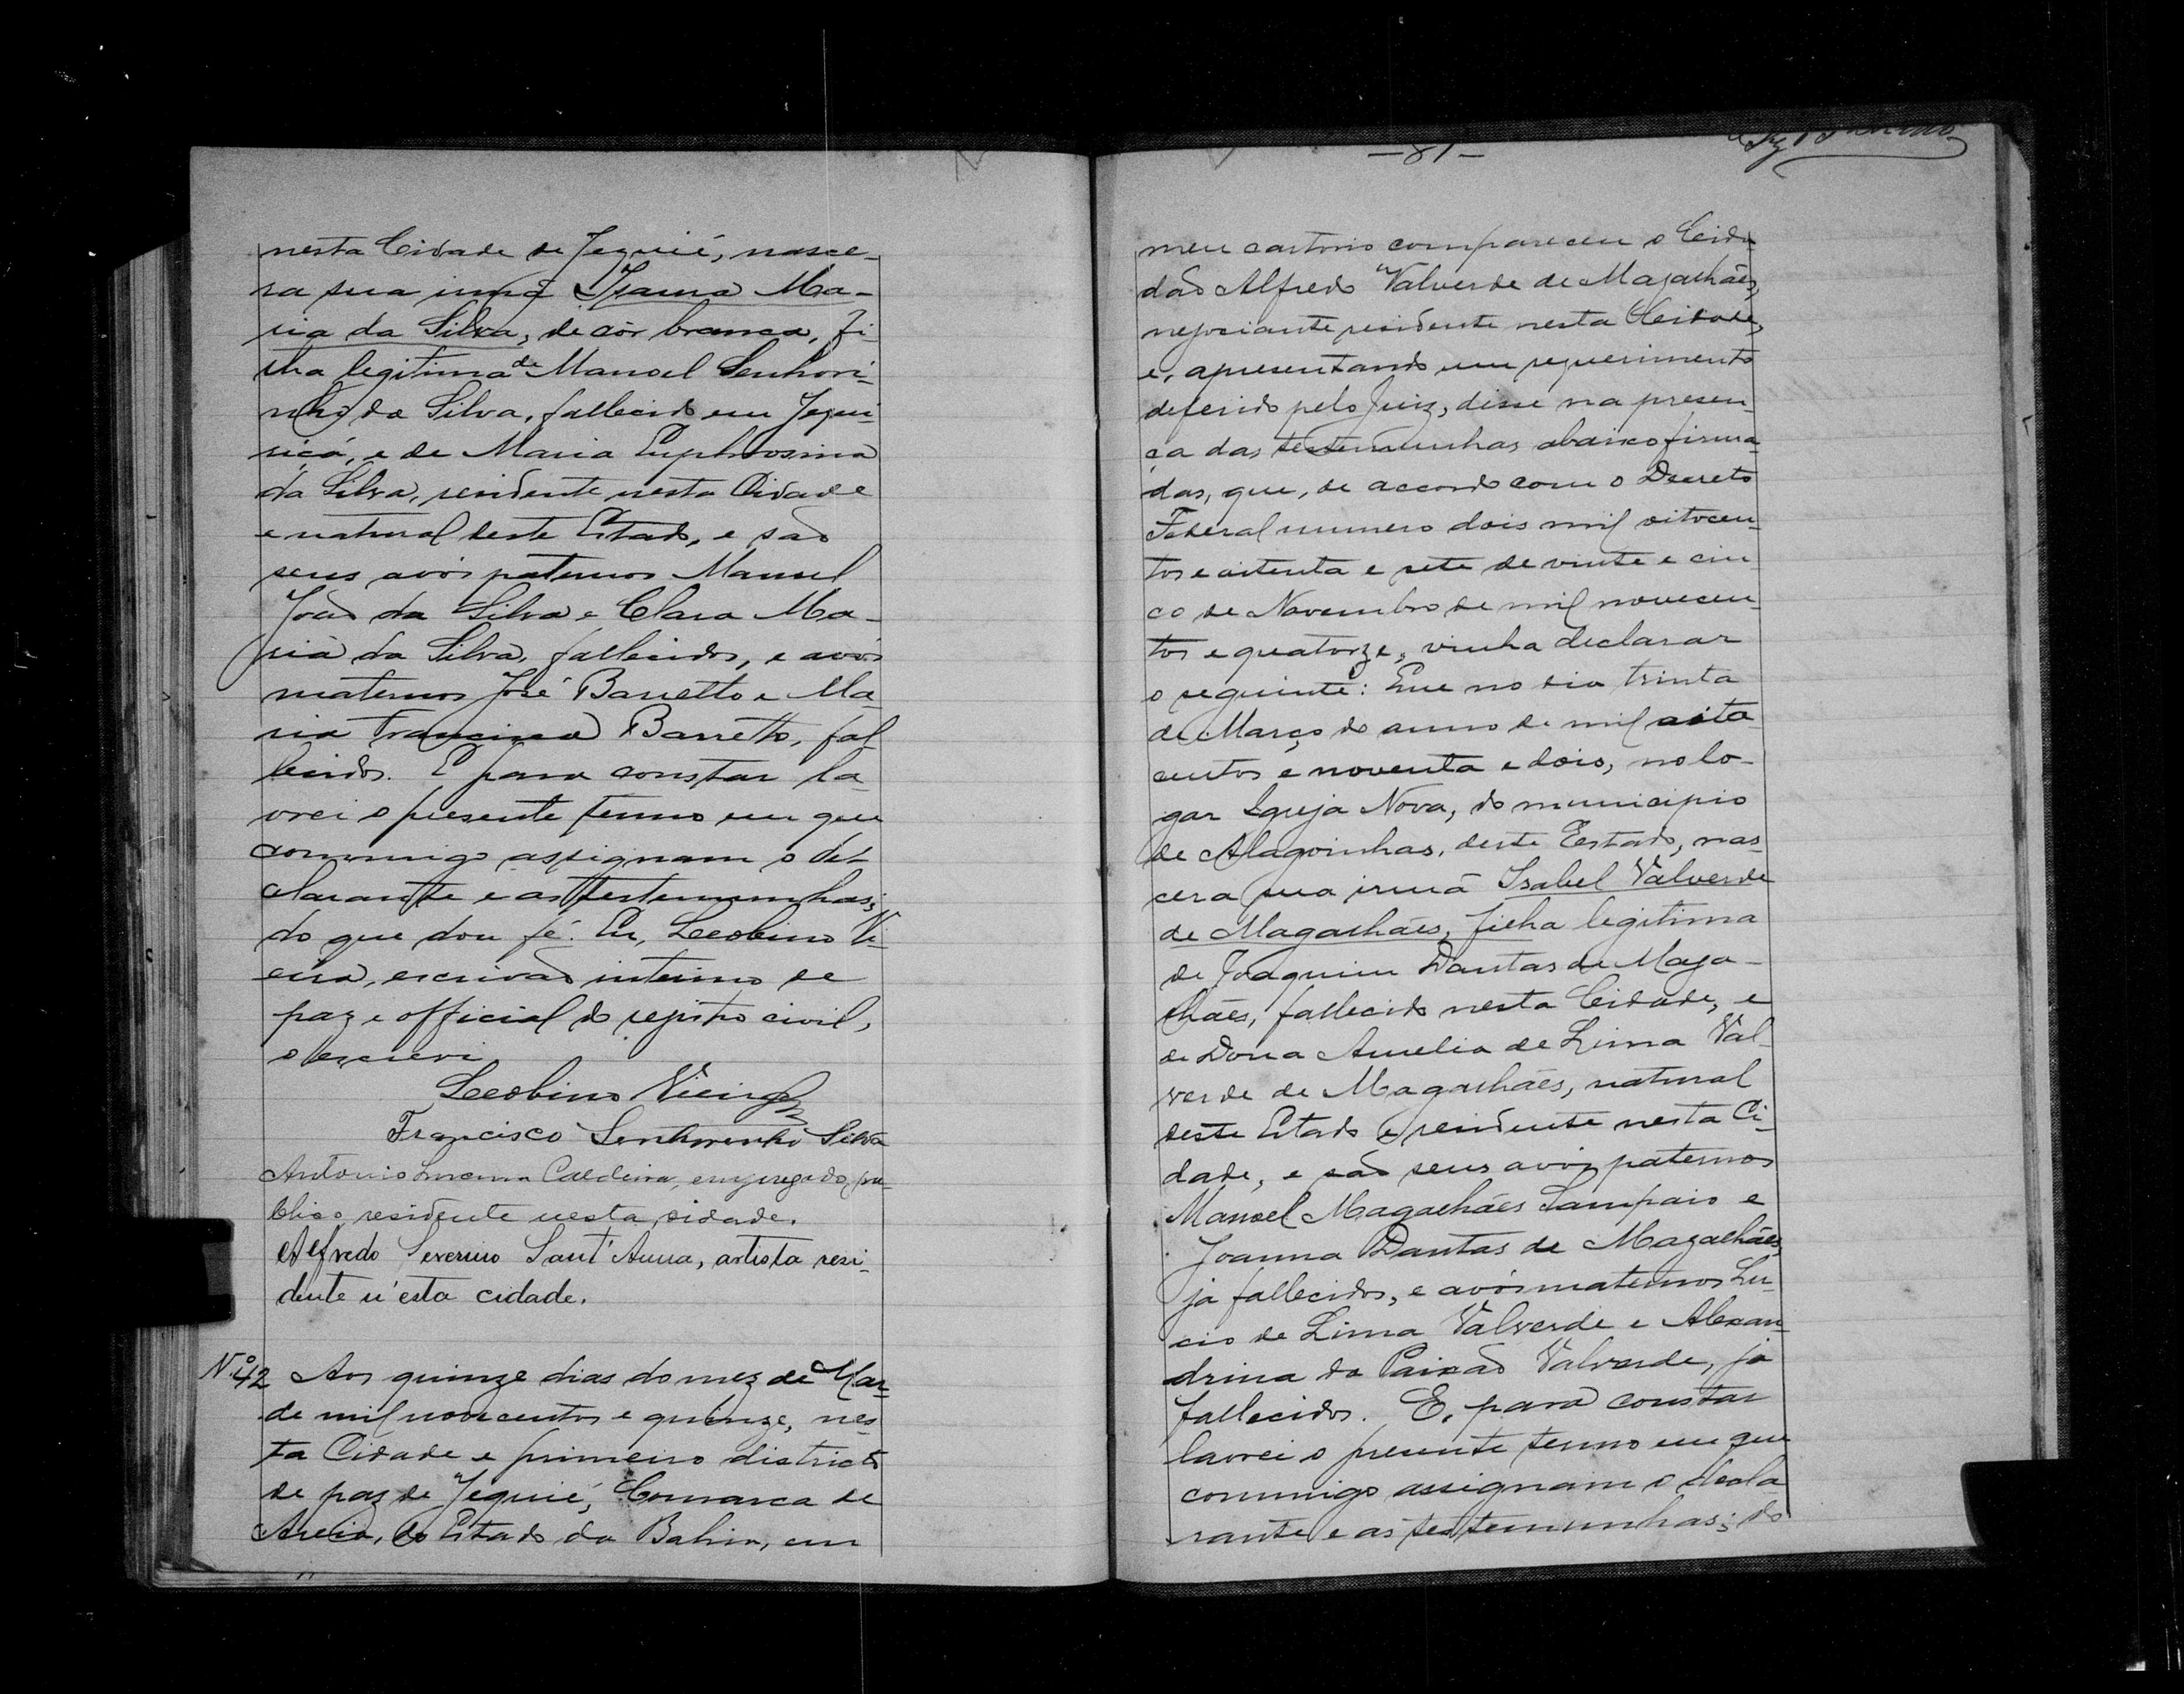 nesta Cidade de Jequié, nasce-
ra sua irmã Isaura Ma-
ria da Silva, de côr branca, fi-
lha legitima de Manoel Senhori-
nho da Silva, fallecido em Jequi-
riçá, e de Maria Euphrosina
da Silva, residente nesta Cidade
e natural deste Estado, e são
seus avós paternos Manoel
João da Silva e Clara Ma-
ria da Silva, fallecidos, e avós
maternos José Barretto e Ma-
ria Francisca Barretto, fal-
lecidos. E para constar la-
vrei o presente termo em que
commigo assignam o de-
clarante e as testemunhas;
do que dou fé. Eu, Leobino Vi-
eira, escrivão interino de
paz e official do registro civil,
o escrevi
Leobino Vieira
Francisco Senhorinho Silva
Antonio Lucena Caldeira, empregado pu-
blico residente nesta cidade.
Alfredo Severino Sant'Anna, artista resi-
dente n'esta cidade.
N.º 42 Aos quinze dias do mez de Mar-
de mil novecentos e quinze, nes-
ta Cidade e primeiro districto
de paz de Jequié, Comarca de
Areia, do Estado da Bahia, em
-81-
meu cartorio compareceu o Cida
dão Alfredo Valverde de Magalhães,
negociante residente nesta Cidade,
e, apresentando um requerimento
deferido pelo Juiz, disse na presen-
ça das testemunhas abaixo firma-
das, que, de accordo com o Decreto
Federal numero dois mil oitocen-
tos e oitenta e sete de vinte e cin
co de Novembro de mil novecen-
tos e quatorze, vinha declarar
o seguinte: Que no dia trinta
de Março do anno de mil oito
centos e noventa e dois, no lo-
gar Igreja Nova, do municipio
de Alagoinhas, deste Estado, nas-
cera sua irmã Isabel Valverde
de Magalhães, filha legitima
de Joaquim Dantas de Maga-
lhães, fallecido nesta Cidade, e
de Dona Amelia de Lima Val-
verde de Magalhães, natural
deste Estado e residente nesta Ci-
dade, e são seus avós paternos
Manoel Magalhães Sampaio e
Joanna Dantas de Magalhães,
já fallecidos, e avós maternos Lu-
cio de Lima Valverde e Alexan-
drina da Paixão Valverde, já
fallecidos. E, para constar
lavrei o presente termo em que
commigo assignam o decla
rante e as testemunhas; do